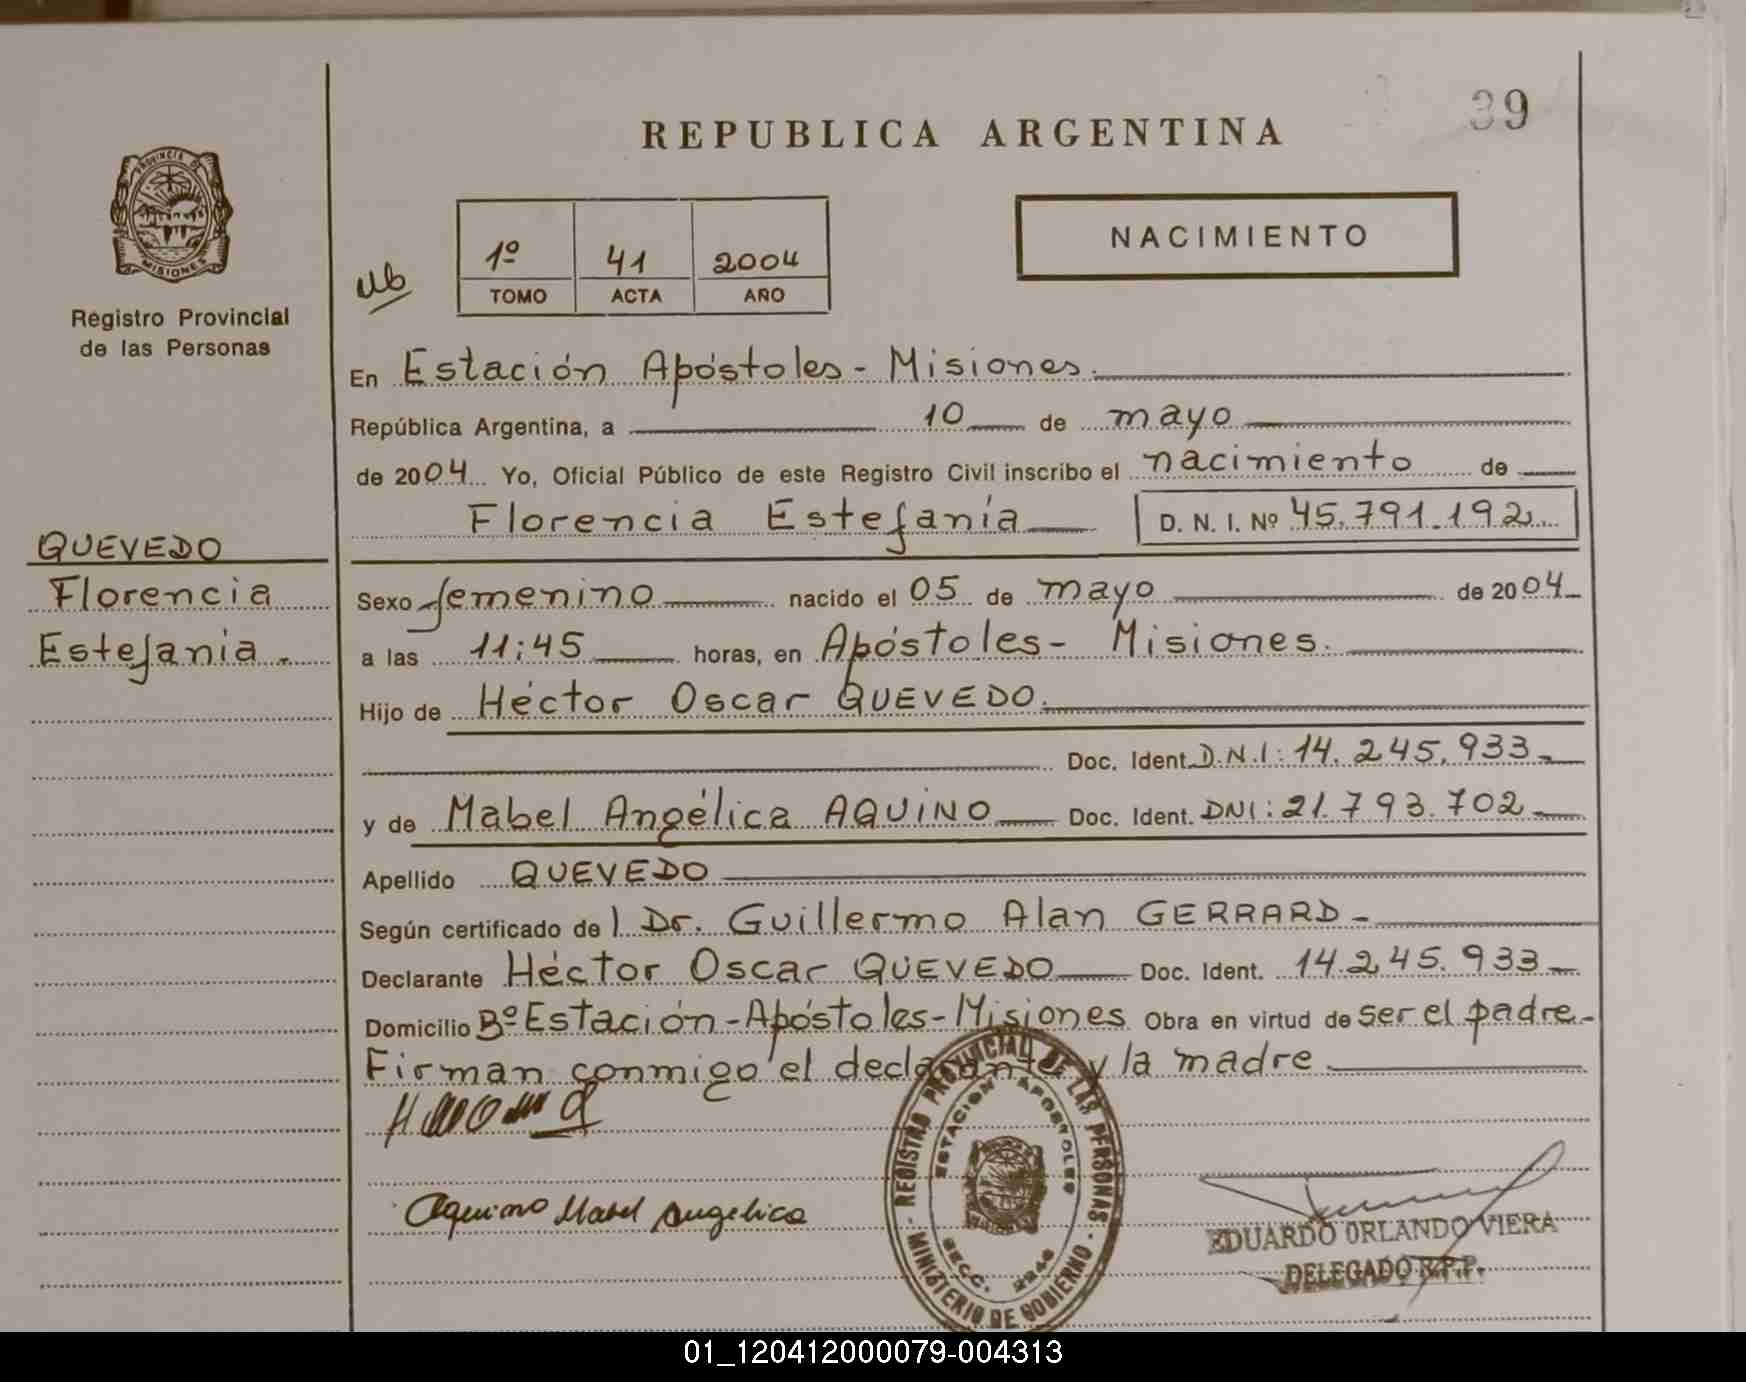 39
REPUBLICA ARGENTINA
PROVINCIA DE
MISIONES
Registro Provincial
de las Personas
1º 41 2004
TOMO ACTA AÑO
NACIMIENTO
En Estación Apóstoles - Misiones.
República Argentina, a 10 de mayo
de 2004 Yo, Oficial Público de este Registro Civil inscribo el nacimiento de
Florencia Estefanía D. N. I. Nº 45.791.192
QUEVEDO
Florencia
Estefania.-
Sexo femenino nacido el 05 de mayo de 2004
a las 11:45 horas, en Apóstoles - Misiones.
Hijo de Héctor Oscar QUEVEDO.
Doc. Ident. D.N.I: 14.245.933.-
y de Mabel Angélica AQUINO Doc. Ident. DNI: 21.793.702
Apellido QUEVEDO
Según certificado de l Dr. Guillermo Alan GERRARD -
Declarante Héctor Oscar QUEVEDO Doc. Ident. 14.245.933
Domicilio Bº Estación - Apóstoles - Misiones Obra en virtud de ser el padre.-
Firman conmigo el declarante y la madre
Aquino Mabel Angelica
REGISTRO PROVINCIAL DE LAS PERSONAS
ESTACION APOSTOLES
SECC. 2246
MINISTERIO DE GOBIERNO
EDUARDO ORLANDO VIERA
DELEGADO R.P.P.
01_120412000079-004313